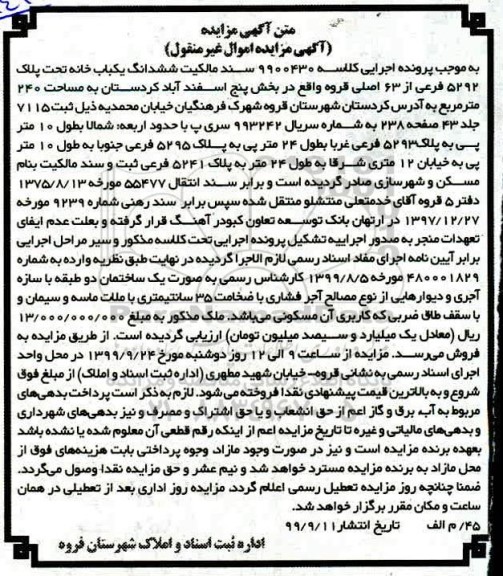 متن آگهی مزایده
(آگهی مزایده اموال غیر منقول)
به موجب پرونده اجرایی کلاسه ۹۹۰۰۴۳۰ سند مالکیت ششدانگ یکباب خانه تحت پلاک
۵۲۹۲ فرعی از ۶۳ اصلی قروه واقع در بخش پنج اسفند آباد کردستان به مساحت ۲۴۰
مترمربع به آدرس کردستان شهرستان قروه شهرک فرهنگیان خیابان محمدیه ذیل ثبت ۷۱۱۵
جلد ۴۳ صفحه ۲۳۸ به شماره سریال ۹۹۳۲۴۲ سری پ با حدود اربعه: شمالا بطول ۱۰ متر
پی به پلاک ۵۲۹۳ فرعی غربا بطول ۲۴ متر پی به پلاک ۵۲۹۵ فرعی جنوبا به طول ۱۰ متر
پی به خیابان ۱۲ متری شرقا به طول ۲۴ متر به پلاک ۵۲۴۱ فرعی ثبت و سند مالکیت بنام
مسکن و شهرسازی صادر گردیده است و برابر سند انتقال ۵۵۴۷۷ مورخه ۱۳۷۵/۸/۱۳
دفتر ۵ قروه آقای خدمتعلی منتشلو منتقل شده سپس برابر سند رهنی شماره ۹۲۳۹ مورخه
۱۳۹۷/۱۲/۲۷ در ارتهان بانک توسعه تعاون کبودر آهنگ قرار گرفته و بعلت عدم ایفای
تعهدات منجر به صدور اجراییه تشکیل پرونده اجرایی تحت کلاسه مذکور و سیر مراحل اجرایی
برابر آیین نامه اجرای مفاد اسناد رسمی لازم الاجرا گردیده در نهایت طبق نظریه وارده به شماره
۴۸۰۰۰۱۸۲۹ مورخه ۱۳۹۹/۸/۵ کارشناس رسمی به صورت یک ساختمان دو طبقه با سازه
آجری و دیوارهایی از نوع مصالح آجر فشاری با ضخامت ۳۵ سانتیمتری با ملات ماسه و سیمان و
با سقف طاق ضربی که کاربری آن مسکونی می‌باشد. ملک مذکور به مبلغ ۱۳/۰۰۰/۰۰۰/۰۰۰
ریال (معادل یک میلیارد و سیصد میلیون تومان) ارزیابی گردیده است. از طریق مزایده به
فروش می‌رسد. مزایده از ساعت ۹ الی ۱۲ روز دوشنبه مورخ ۱۳۹۹/۹/۲۴ در محل واحد
اجرای اسناد رسمی به نشانی قروه- خیابان شهید مطهری (اداره ثبت اسناد و املاک) از مبلغ فوق
شروع و به بالاترین قیمت پیشنهادی نقدا فروخته می‌شود. لازم به ذکر است پرداخت بدهی‌های
مربوط به آب، برق و گاز اعم از حق انشعاب و یا حق اشتراک و مصرف و نیز بدهی‌های شهرداری
و بدهی‌های مالیاتی و غیره تا تاریخ مزایده اعم از اینکه رقم قطعی آن معلوم شده یا نشده باشد
بعهده برنده مزایده است و نیز در صورت وجود مازاد، وجوه پرداختی بابت هزینه‌های فوق از
محل مازاد به برنده مزایده مسترد خواهد شد و نیم عشر و حق مزایده نقدا وصول می‌گردد.
ضمنا چنانچه روز مزایده تعطیل رسمی اعلام گردد، مزایده روز اداری بعد از تعطیلی در همان
ساعت و مکان مقرر برگزار خواهد شد.
۴۵/ م الف تاریخ انتشار ۹۹/۹/۱۱
اداره ثبت اسناد و املاک شهرستان قروه